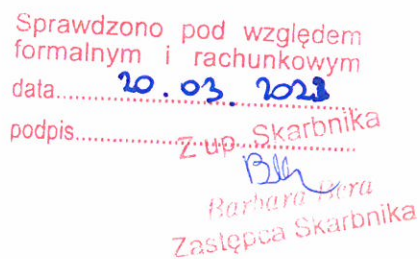 Sprawdzono pod względem
formalnym i rachunkowym
data..........20.03.2023
podpis....................
Z up. Skarbnika
Barbara Bera
Zastępca Skarbnika